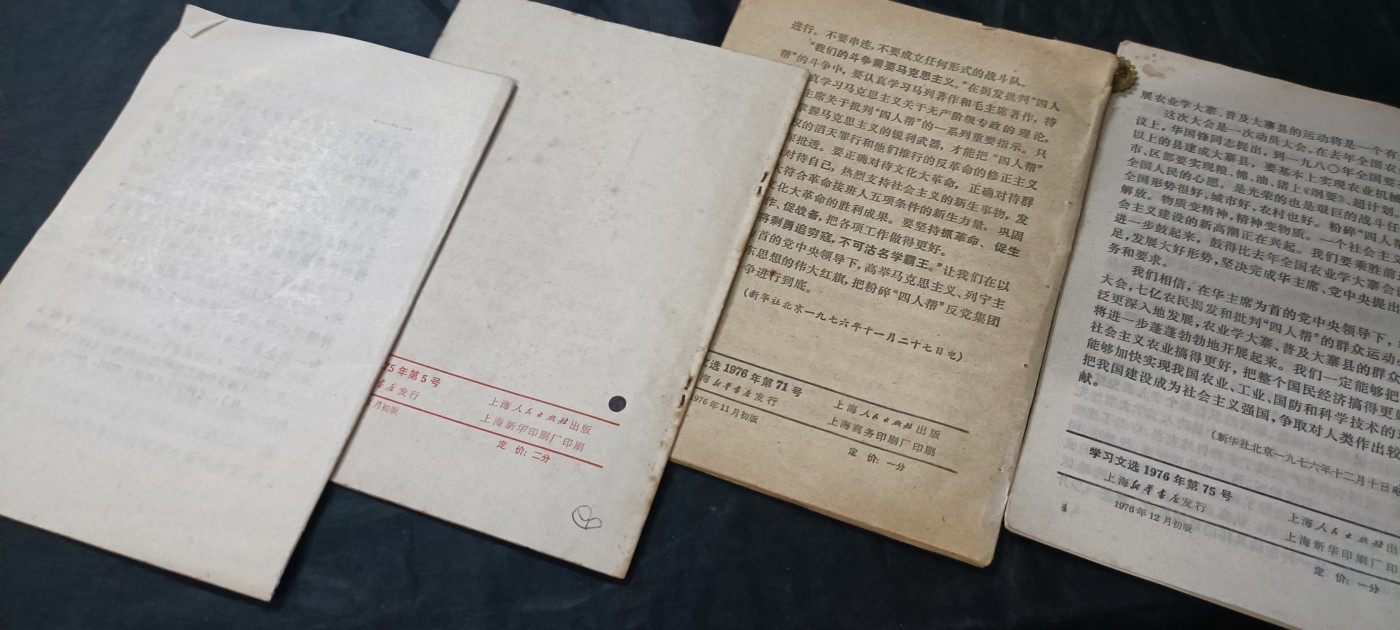 75年第5号
上海人民出版社出版
发行
上海新华印刷厂印刷
月初版
定价：二分
进行。不要串连，不要成立任何形式的战斗队。
“我们的斗争需要马克思主义。”在揭发批判“四人
帮”的斗争中，要认真学习马列著作和毛主席著作，特
真学习马克思主义关于无产阶级专政的理论，
主席关于批判“四人帮”的一系列重要指示。只
掌握马克思主义的锐利武器，才能把“四人帮”
的滔天罪行和他们推行的反革命的修正主义
批透。要正确对待文化大革命，正确对待群
对待自己，热烈支持社会主义的新生事物，发
符合革命接班人五项条件的新生力量，巩固
文化大革命的胜利成果。要坚持抓革命、促生
作、促战备，把各项工作做得更好。
将剩勇追穷寇，不可沽名学霸王。”让我们在以
首的党中央领导下，高举马克思主义、列宁主
东思想的伟大红旗，把粉碎“四人帮”反党集团
争进行到底。
（新华社北京一九七六年十一月二十七日电）
文选1976年第71号
上海人民出版社出版
新华书店发行
上海商务印刷厂印刷
1976年11月初版
定价：一分
展农业学大寨、普及大寨县的运动将是一个有
这次大会是一次动员大会。在去年全国农
议上，华国锋同志提出，到一九八〇年全国要
以上的县建成大寨县，要基本上实现农业机械
市、区都要实现粮、棉、油、猪上《纲要》、超计划
全国人民的心愿，是光荣的也是艰巨的战斗任
全国形势很好，城市好，农村也好。粉碎“四人
解放。物质变精神，精神变物质。一个社会主义
会主义建设的新高潮正在兴起。我们要乘胜前
进一步鼓起来，鼓得比去年全国农业学大寨会
足，发展大好形势，坚决完成华主席、党中央提出
务和要求。
我们相信，在华主席为首的党中央领导下，
大会，七亿农民揭发和批判“四人帮”的群众运动
泛更深入地发展，农业学大寨、普及大寨县的群众
将进一步蓬蓬勃勃地开展起来。我们一定能够把
社会主义农业搞得更好，把整个国民经济搞得更
能够加快实现我国农业、工业、国防和科学技术的
把我国建设成为社会主义强国，争取对人类作出较
献。
（新华社北京一九七六年十二月十日电
学习文选1976年第75号
上海人民出版社出
上海新华书店发行
上海新华印刷厂印
1976年12月初版
定价：一分